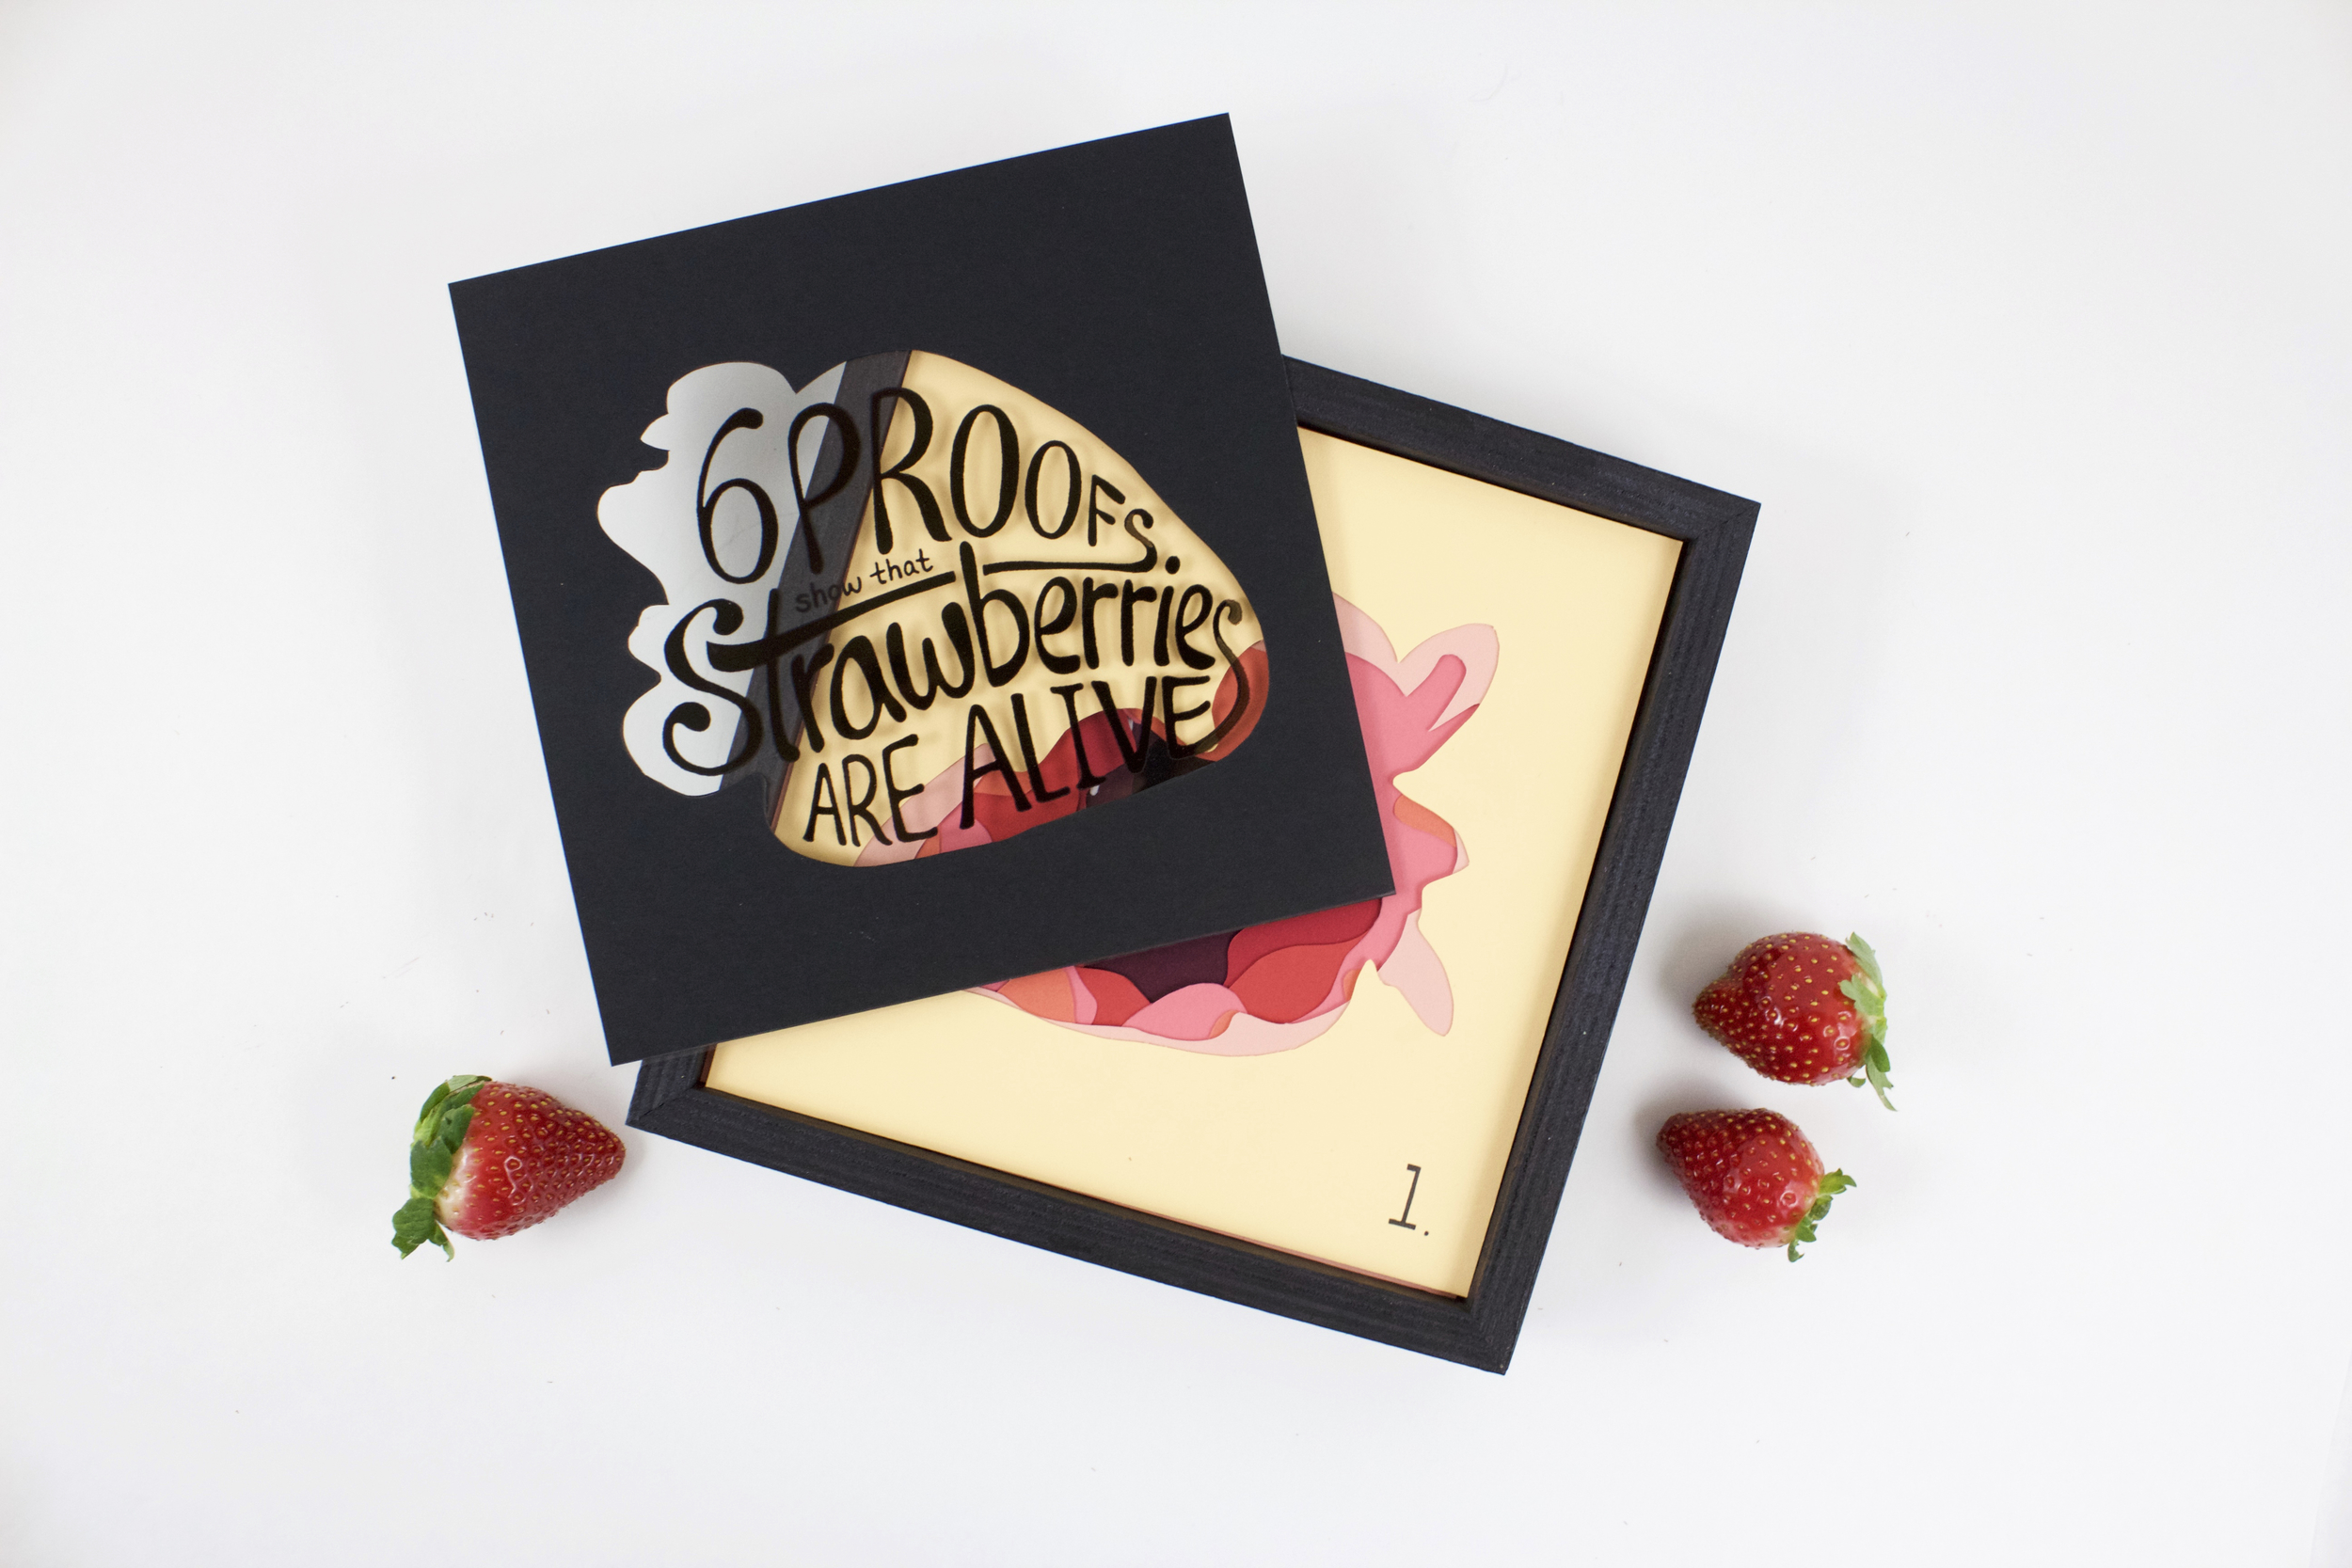 6 PROOFS.
show that
Strawberries
ARE ALIVE
1.